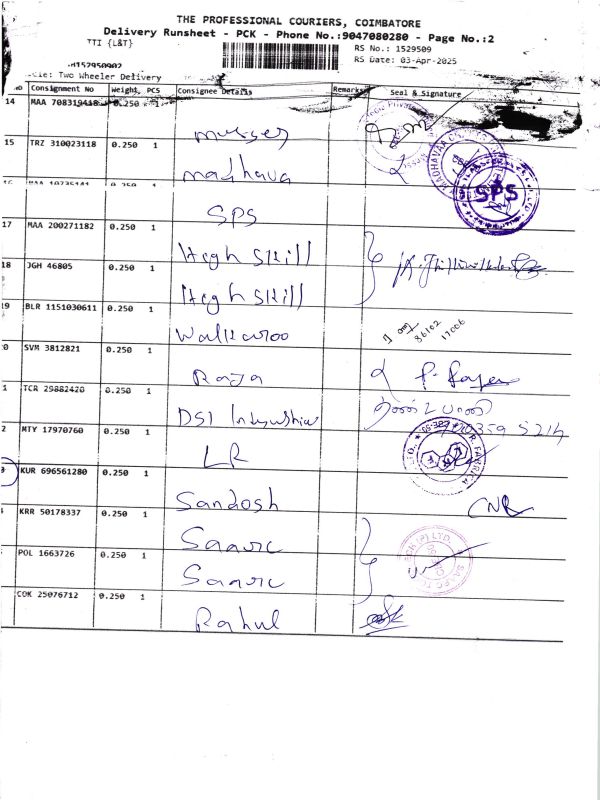 THE PROFESSIONAL COURIERS, COIMBATORE
Delivery Runsheet - PCK - Phone No.:9047080280 - Page No.:2
TTI {L&T}
RS No.: 1529509
RS Date: 03-Apr-2025
Two Wheeler Delivery
Consignment No Weight, PCS Consignee Details Remarks Seal & Signature
14 MAA 708319418 0.250 1
15 TRZ 310023118 0.250 1
madhava
16 0.250 1
SPS
SPS
17 MAA 200271182 0.250 1 High Skill
18 JGH 46805 0.250 1 High Skill
19 BLR 1151030611 0.250 1 Walkaroo
86102
17006
0 SVM 3812821 0.250 1 Raja
1 TCR 29882420 0.250 1 DSI
2 MTY 17970760 0.250 1 LR
3 KUR 696561280 0.250 1 Sandosh
KRR 50178337 0.250 1 Saarc
POL 1663726 0.250 1 Saarc
COK 25076712 0.250 1 Rahul